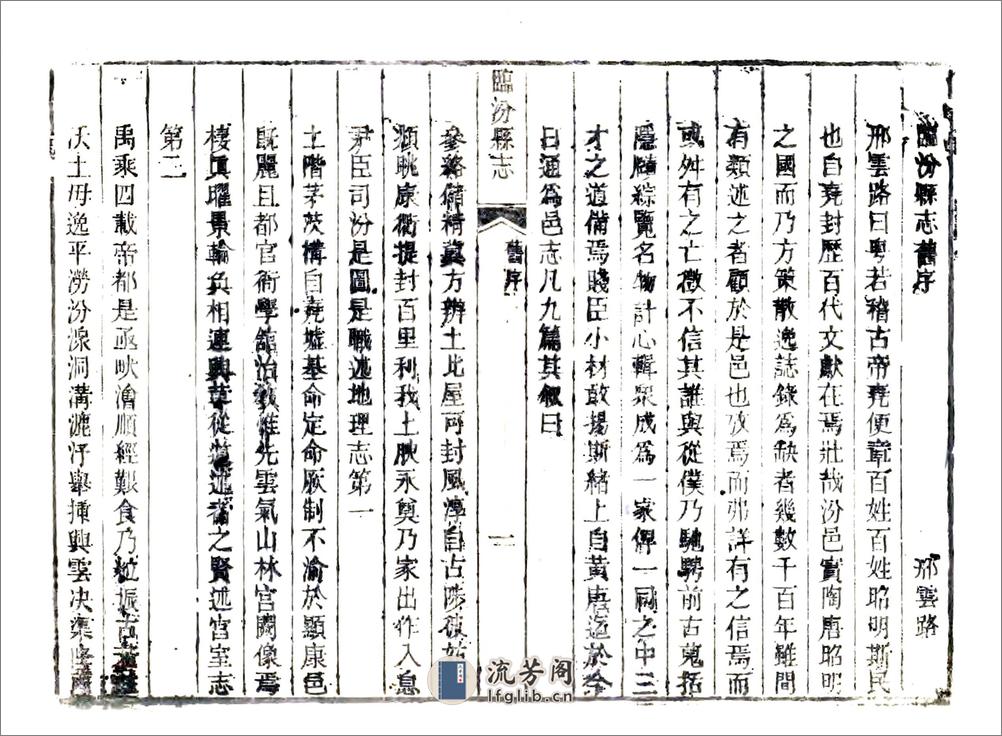 臨汾縣志舊序 邢雲路
邢雲路曰粵若稽古帝堯便章百姓百姓昭明斯民
也自堯封歷百代文獻在焉壯哉汾邑實陶唐昭明
之國而乃方策散逸誌錄為缺者幾數千百年雖間
有類述之者顧於是邑也攷焉而弗詳有之信焉而
或舛有之亡徵不信其誰與從僕乃馳騁前古蒐括
隱賾綜覽名物計心輯眾成為一家俾一同之中三
才之道備焉賤臣小材敢揚斯緒上自黃唐迄於今
日通為邑志凡九篇其敘曰
臨汾縣志 舊序 一
參絡儲精冀方辨土比屋可封風淳自古陟彼姑
頫眺康衢提封百里利我土腴永奠乃家出作入息
尹臣司汾是圖是職述地理志第一
土階茅茨構自堯墟基命定命厥制不渝於顯康邑
既麗且都官衙學館治教維先雲氣山林宮闕像焉
棲真曜景輪奐相連興革從益述者之賢述宮室志
第二
禹乘四載帝都是亟畎澮順經艱食乃粒振古
沃土毋逸平澇汾源洞溝漉汙舉揷興雲决渠
流芳阁
lfglib.cn